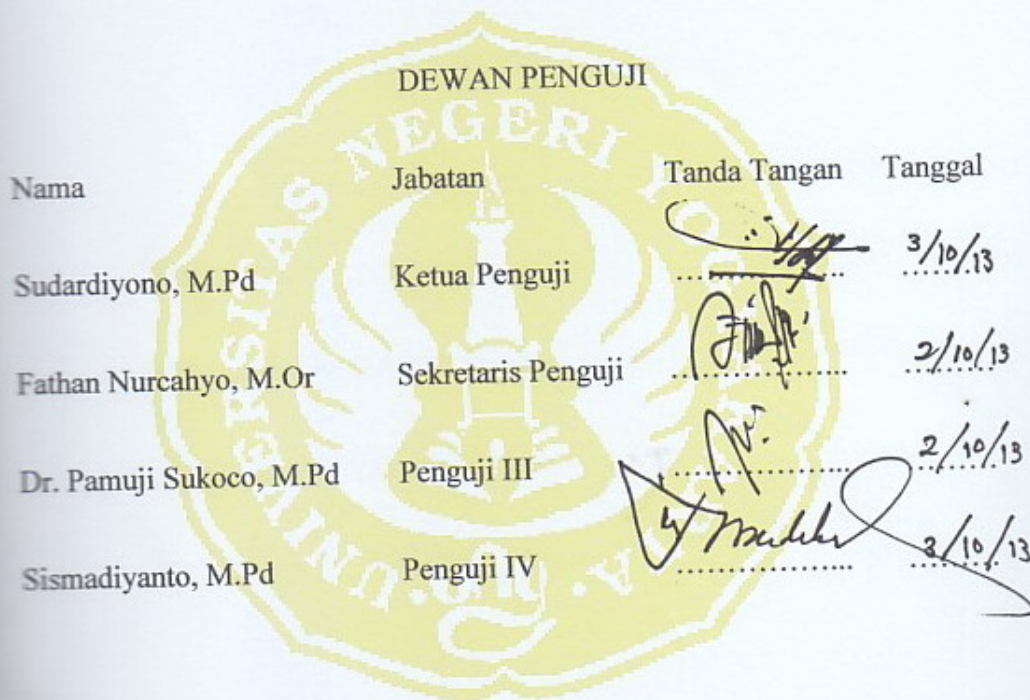 DEWAN PENGUJI
Nama Jabatan Tanda Tangan Tanggal
Sudardiyono, M.Pd Ketua Penguji .................. 3/10/13
Fathan Nurcahyo, M.Or Sekretaris Penguji .................. 2/10/13
Dr. Pamuji Sukoco, M.Pd Penguji III .................. 2/10/13
Sismadiyanto, M.Pd Penguji IV .................. 3/10/13
UNIVERSITAS NEGERI